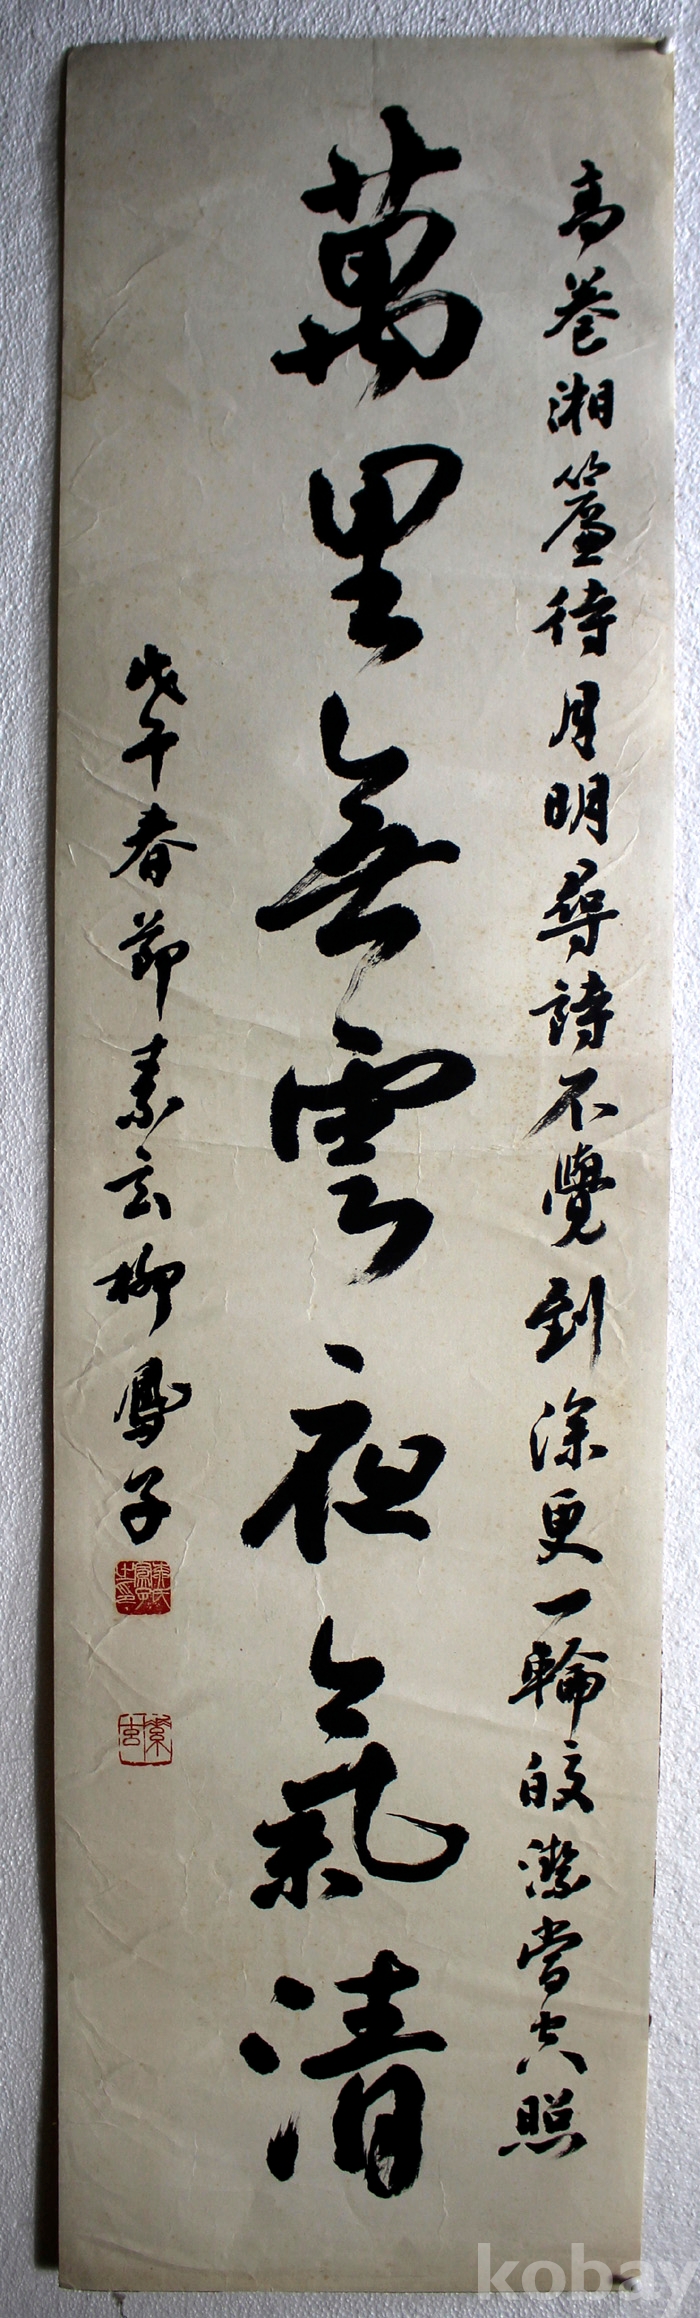 高卷湘簾待月明尋詩不覺到深更一輪皎潔當空照
萬里無雲夜氣清
戊午春節素玄柳鳳子
素玄
kobay